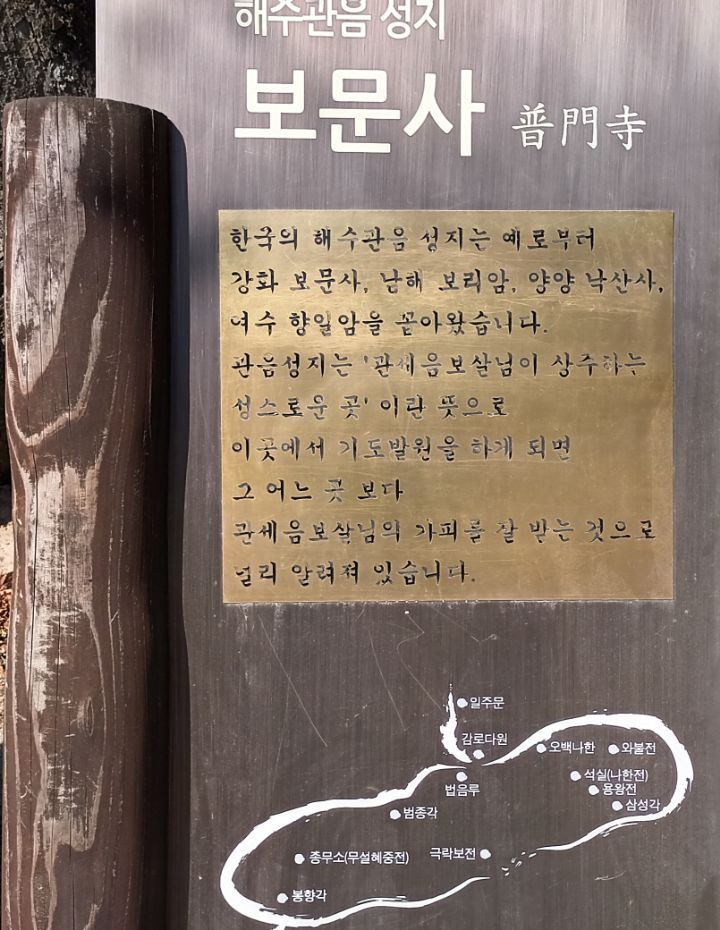 해수관음 성지
보문사 普門寺
한국의 해수관음 성지는 예로부터
강화 보문사, 남해 보리암, 양양 낙산사,
여수 향일암을 꼽아왔습니다.
관음성지는 '관세음보살님이 상주하는
성스로운 곳' 이란 뜻으로
이곳에서 기도발원을 하게 되면
그 어느 곳 보다
관세음보살님의 가피를 잘 받는 것으로
널리 알려져 있습니다.
일주문
감로다원
오백나한
와불전
법음루
석실(나한전)
용왕전
삼성각
범종각
종무소(무설혜중전)
극락보전
봉향각